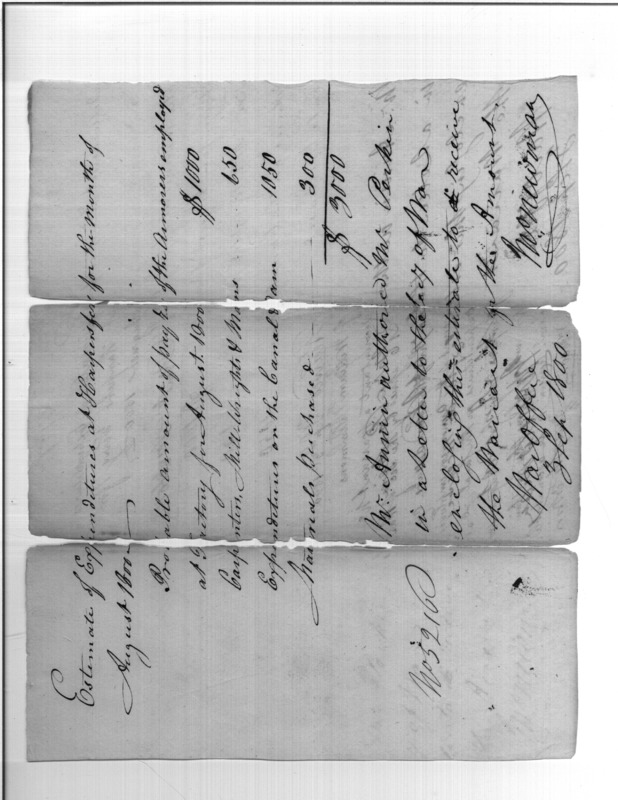 Estimate of Expenditures at Harpers ferry for the Month of
August 1800
Probable amount of pay &c of the Armorers employed
at Factory for August 1800 $1000
Carpenters, Millwrights & Masons 650
Expenditures on the Canal & Dam 1050
Materials purchased 300
$ 3000
Mr. Irwin authorized Mr. Perkin
in a Letter to the Secy of War
enclosing this estimate to receive
the Warrant for the Amount.
War Office
3 Sep 1800.
No 5216